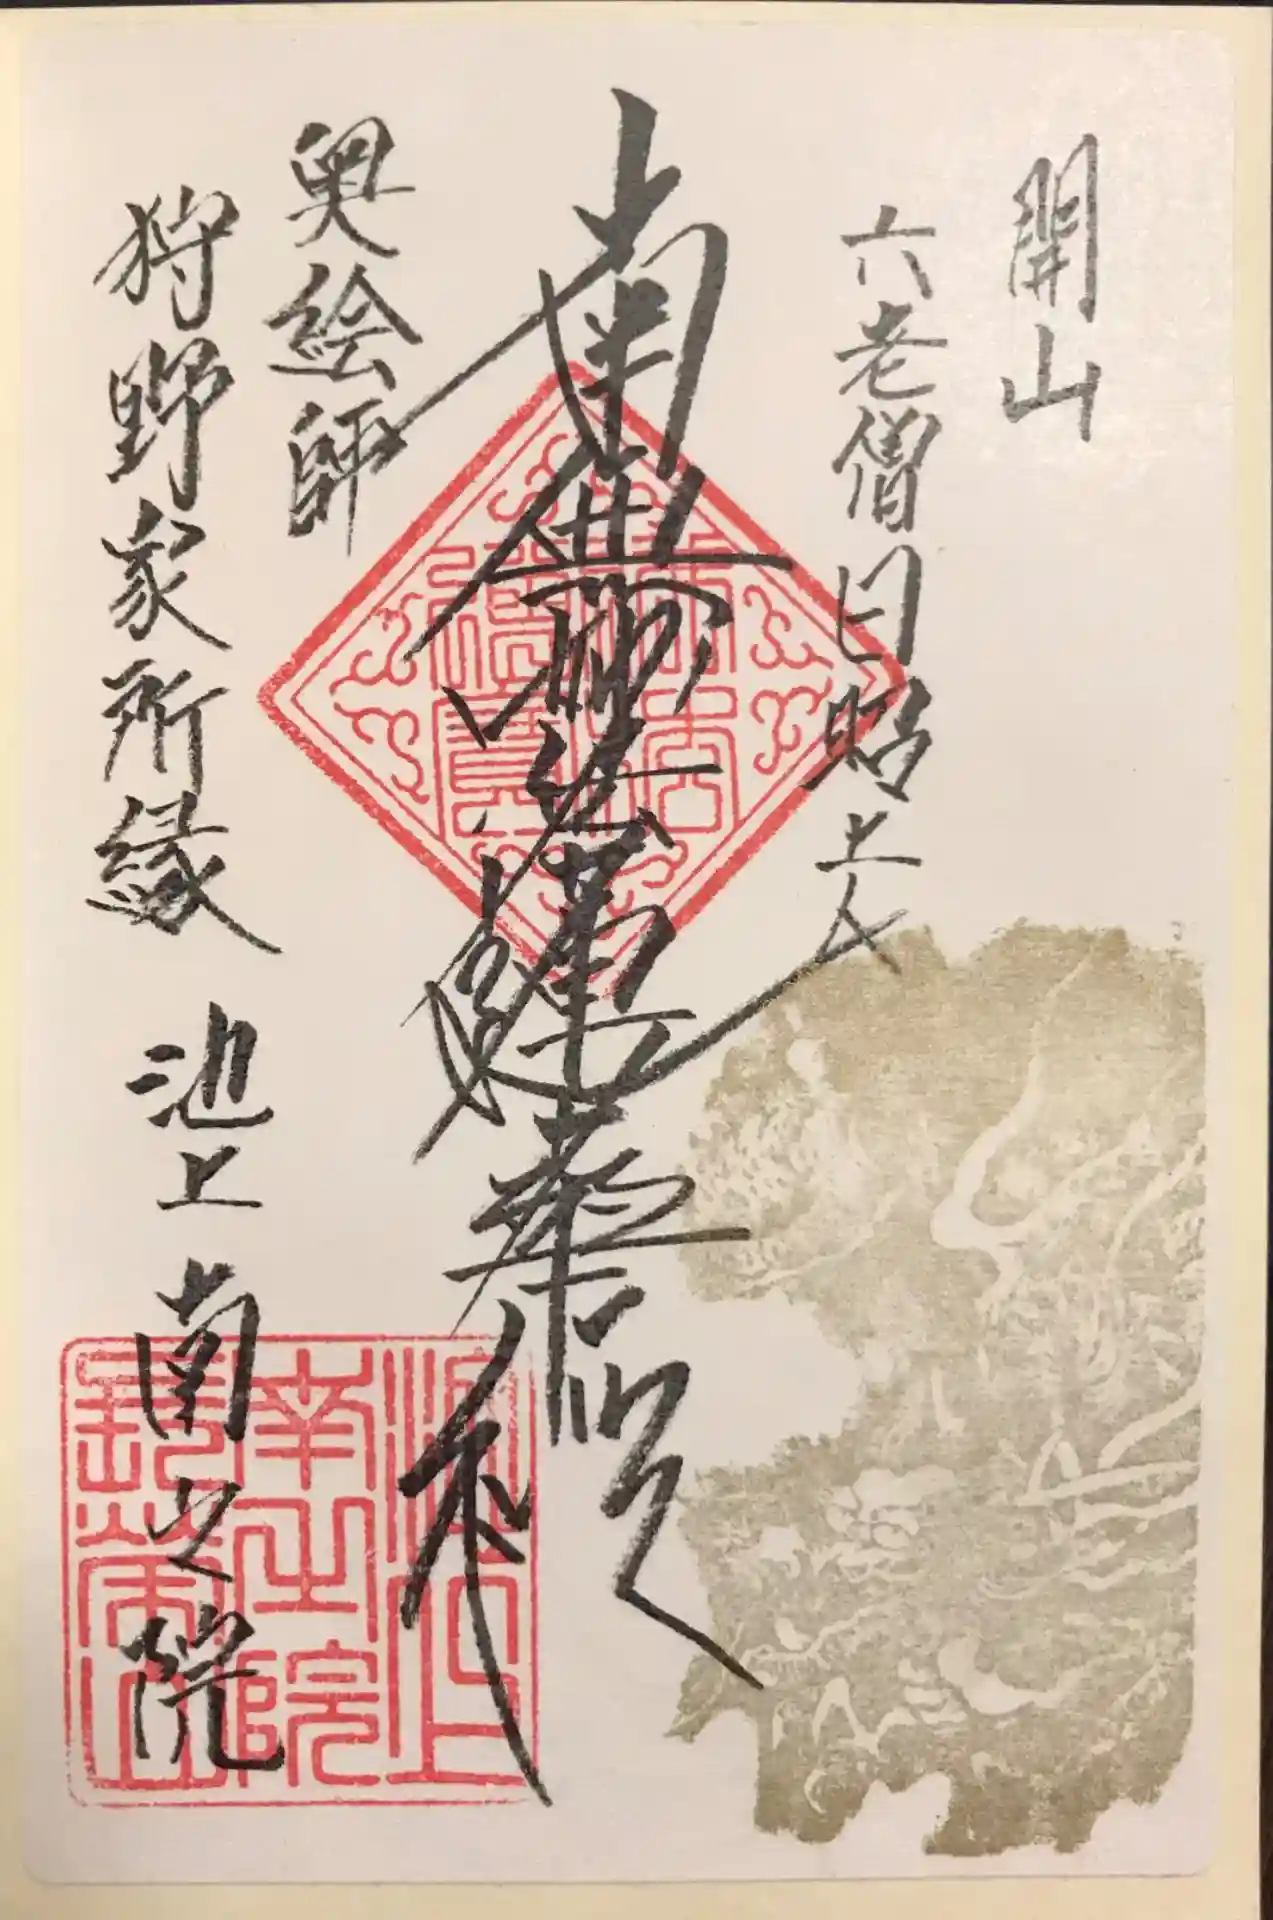 開山
六老僧日昭上人
南無妙法蓮華経
奥絵師
狩野家所縁 池上 南之院
池上
南之院